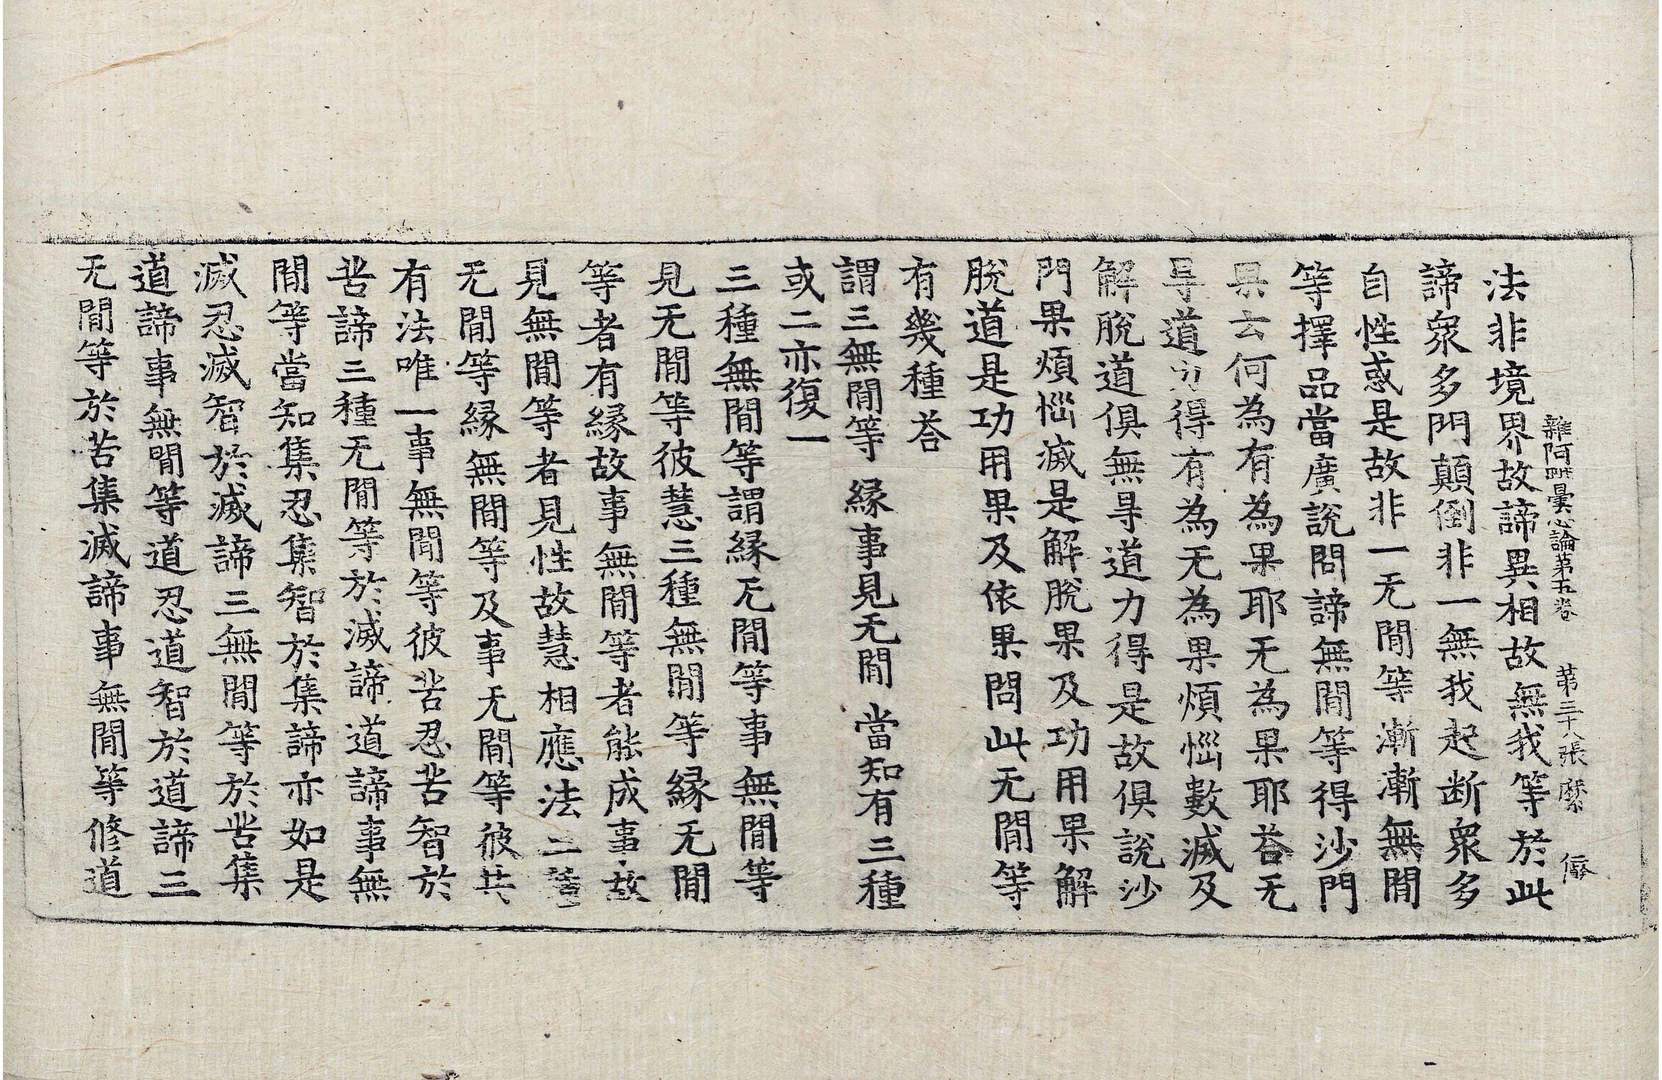 雜阿毗曇心論第五卷　第三十八張　縻
法非境界故諦異相故無我等於此
諦衆多門顛倒非一無我起断衆多
自性惑是故非一无閒等漸漸無閒
等擇品當廣說問諦無閒等得沙門
果云何為有為果耶无為果耶荅无
㝵道力得有為无為果煩惱數滅及
解脫道俱無㝵道力得是故俱說沙
門果煩惱滅是解脫果及功用果解
脫道是功用果及依果問此无閒等
有幾種荅
謂三無閒等　緣事見无閒　當知有三種
或二亦復一
三種無閒等謂緣无閒等事無閒等
見无閒等彼慧三種無閒等緣无閒
等者有緣故事無閒等者能成事故
見無閒等者見性故慧相應法二種
无閒等緣無閒等及事无閒等彼共
有法唯一事無閒等彼苦忍苦智於
苦諦三種无閒等於滅諦道諦事無
閒等當知集忍集智於集諦亦如是
滅忍滅智於滅諦三無閒等於苦集
道諦事無閒等道忍道智於道諦三
无閒等於苦集滅諦事無閒等修道